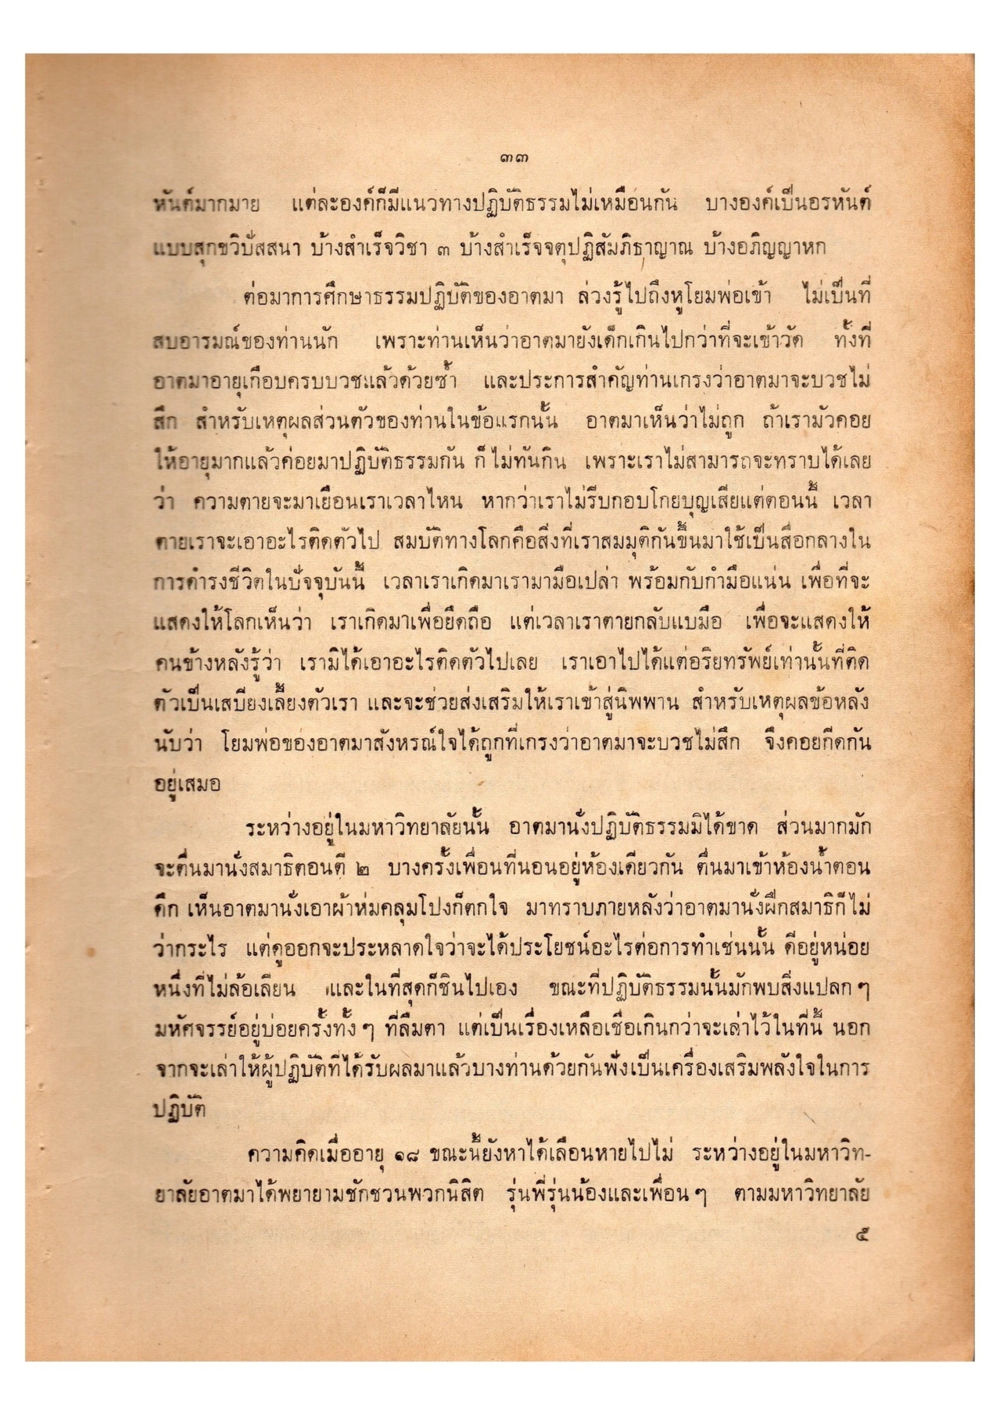 ๓๓
หันต์มากมาย แต่ละองค์ก็มีแนวทางปฏิบัติธรรมไม่เหมือนกัน บางองค์เป็นอรหันต์
แบบสุกขวิปัสสนา บ้างสำเร็จวิชา ๓ บ้างสำเร็จจตุปฏิสัมภิธาญาณ บ้างอภิญญาหก
ต่อมาการศึกษาธรรมปฏิบัติของอาตมา ล่วงรู้ไปถึงหูโยมพ่อเข้า ไม่เป็นที่
สบอารมณ์ของท่านนัก เพราะท่านเห็นว่าอาตมายังเด็กเกินไปกว่าที่จะเข้าวัด ทั้งที่
อาตมาอายุเกือบครบบวชแล้วด้วยซ้ำ และประการสำคัญท่านเกรงว่าอาตมาจะบวชไม่
สึก สำหรับเหตุผลส่วนตัวของท่านในข้อแรกนั้น อาตมาเห็นว่าไม่ถูก ถ้าเรามัวคอย
ให้อายุมากแล้วค่อยมาปฏิบัติธรรมกัน ก็ไม่ทันกิน เพราะเราไม่สามารถจะทราบได้เลย
ว่า ความตายจะมาเยือนเราเวลาไหน หากว่าเราไม่รีบกอบโกยบุญเสียแต่ตอนนี้ เวลา
ตายเราจะเอาอะไรติดตัวไป สมบัติทางโลกคือสิ่งที่เราสมมุติกันขึ้นมาใช้เป็นสื่อกลางใน
การดำรงชีวิตในปัจจุบันนี้ เวลาเราเกิดมาเรามามือเปล่า พร้อมกับกำมือแน่น เพื่อที่จะ
แสดงให้โลกเห็นว่า เราเกิดมาเพื่อยึดถือ แต่เวลาเราตายกลับแบมือ เพื่อจะแสดงให้
คนข้างหลังรู้ว่า เรามิได้เอาอะไรติดตัวไปเลย เราเอาไปได้แต่อริยทรัพย์เท่านั้นที่ติด
ตัวเป็นเสบียงเลี้ยงตัวเรา และจะช่วยส่งเสริมให้เราเข้าสู่นิพพาน สำหรับเหตุผลข้อหลัง
นับว่า โยมพ่อของอาตมาสังหรณ์ใจได้ถูกที่เกรงว่าอาตมาจะบวชไม่สึก จึงคอยกีดกัน
อยู่เสมอ
ระหว่างอยู่ในมหาวิทยาลัยนั้น อาตมานั่งปฏิบัติธรรมมิได้ขาด ส่วนมากมัก
จะตื่นมานั่งสมาธิตอนตี ๒ บางครั้งเพื่อนที่นอนอยู่ห้องเดียวกัน ตื่นมาเข้าห้องน้ำตอน
ดึก เห็นอาตมานั่งเอาผ้าห่มคลุมโปงก็ตกใจ มาทราบภายหลังว่าอาตมานั่งฝึกสมาธิก็ไม่
ว่ากระไร แต่ดูออกจะประหลาดใจว่าจะได้ประโยชน์อะไรต่อการทำเช่นนั้น ดีอยู่หน่อย
หนึ่งที่ไม่ล้อเลียน และในที่สุดก็ชินไปเอง ขณะที่ปฏิบัติธรรมนั้นมักพบสิ่งแปลก ๆ
มหัศจรรย์อยู่บ่อยครั้งทั้ง ๆ ที่ลืมตา แต่เป็นเรื่องเหลือเชื่อเกินกว่าจะเล่าไว้ในที่นี้ นอก
จากจะเล่าให้ผู้ปฏิบัติที่ได้รับผลมาแล้วบางท่านด้วยกันฟังเป็นเครื่องเสริมพลังใจในการ
ปฏิบัติ
ความคิดเมื่ออายุ ๑๘ ขณะนี้ยังหาได้เลือนหายไปไม่ ระหว่างอยู่ในมหาวิท-
ยาลัยอาตมาได้พยายามชักชวนพวกนิสิต รุ่นพี่รุ่นน้องและเพื่อน ๆ ตามมหาวิทยาลัย
๕